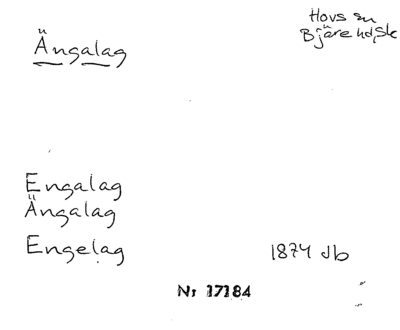 Ängalag
Hovs sn
Bjäre hd, Sk
Engalag
Ängalag
Engelag
1874 Jb
Nr 17184